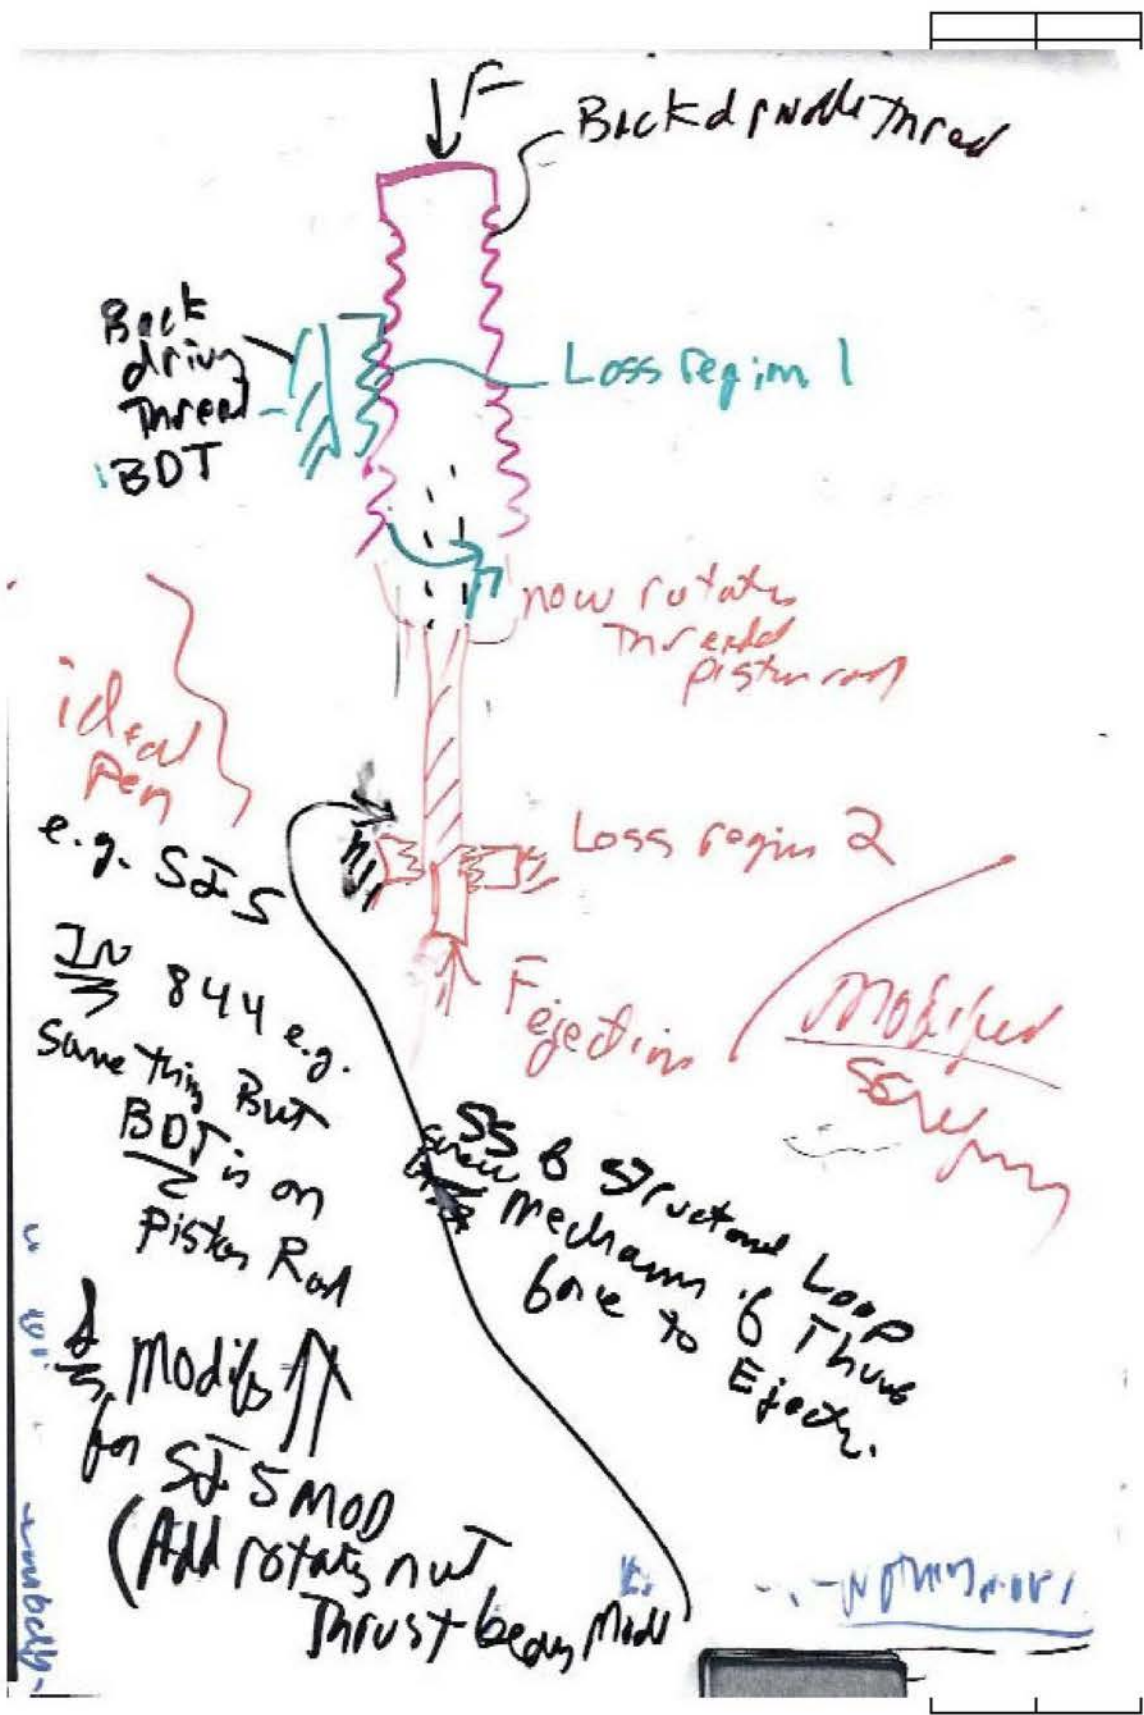 F
Back drivable Thread
Back
driving
Thread
BDT
Loss region 1
now rotates
Threaded
piston rod
ideal
Pen
e.g. SIS
Loss region 2
F ejection
Modified
IN 844 e.g.
Same thing But
BDT is on
Piston Rod
structural Loop
Screw Mechanism of Thumb
force to Ejectn.
& Modify
for SIS MOD
(Add rotating nut
Thrust bearing